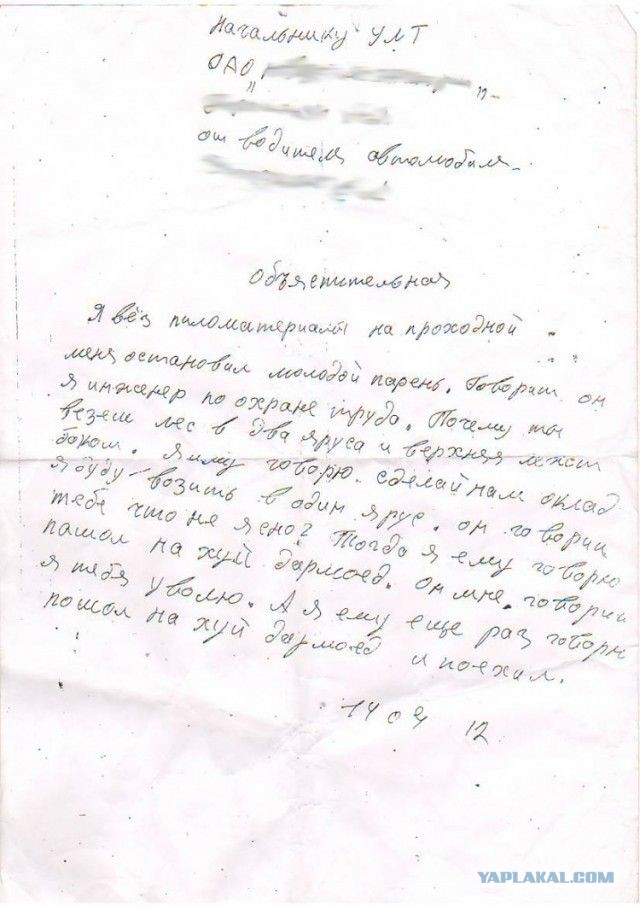 Начальнику УМТ
ОАО "
"-
от водителя автомобиля-
Объяснительная
Я вёз пиломатериалы на проходной
меня остановил молодой парень. Говорит он
я инженер по охране труда. Почему ты
везеш лес в два яруса и верхняя лежит
боком. Я иму говорю. сделай нам оклад
я буду возить в один ярус. он говорит
тебе что не ясно? Тогда я ему говорю
пашол на хуй дармоед. он мне говорит
я тебя уволю. А я ему еще раз говорю
пошол на хуй дармоед и поехал.
14 04 12
YAPLAKAL.COM